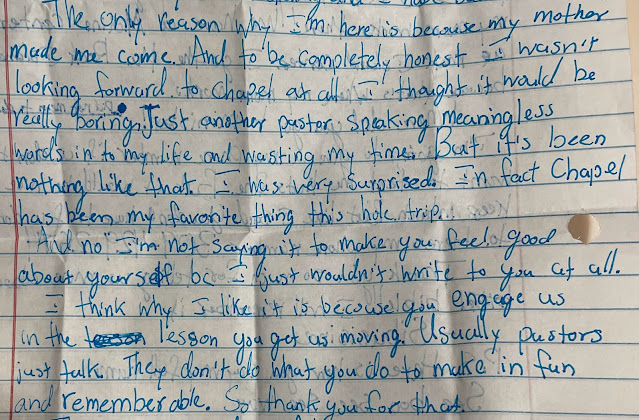 The only reason why I'm here is because my mother
made me come. And to be completely honest I wasn't
looking forward to Chapel at all I thought it would be
really boring, Just another pastor speaking meaningless
words in to my life and wasting my time. But it's been
nothing like that. I was very surprised. In fact Chapel
has been my favorite thing this hole trip.
And no I'm not saying it to make you feel good
about yourself bc I just wouldn't write to you at all.
I think why I like it is because you engage us
in the lesson you get us moving. Usually pastors
just talk. They don't do what you do to make in fun
and rememberable. So thank you for that.